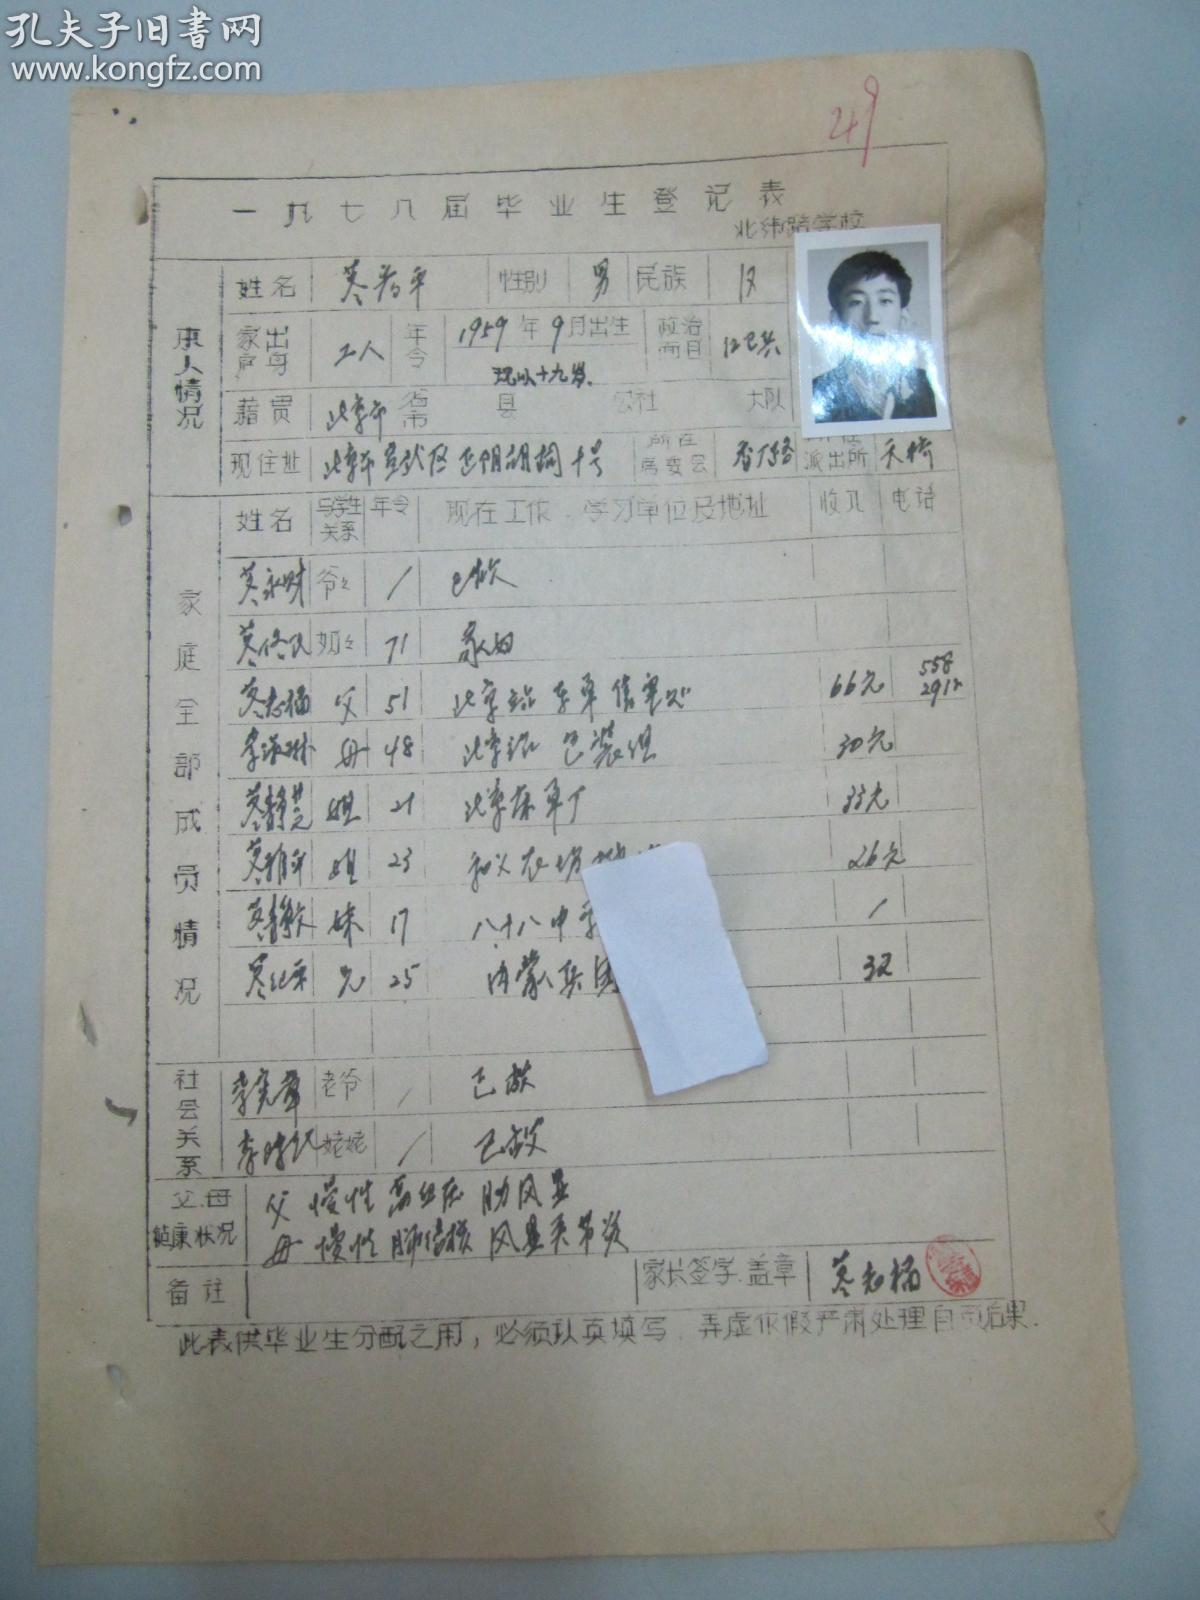 孔夫子旧书网
www.kongfz.com
49
一九七八届毕业生登记表
北纬路学校
本人情况
姓名 平 性别 男 民族 汉
家庭出身 工人 年令 1959年9月出生 政治面目 红卫兵
现以十九岁.
籍贯 北京市 省市 县 公社 大队
现住址 北京市宣武区 胡同十号 所在居委会 香厂路 派出所 天桥
家庭全部成员情况
姓名 与学生关系 年令 现在工作.学习单位及地址 收入 电话
永财 爷々 / 已故
奶々 71 家妇
志福 父 51 北京站 66元 558 2912
李淑琳 母 48 北京站 包装组 30元
静芝 姐 21 北京床单厂 33元
姐 23 农场 26元
静欣 妹 17 八十八中学 /
纪平 兄 25 内蒙兵团 32
社会关系
李 老爷 / 已故
李 姥姥 / 已故
父.母健康状况
父 慢性高血压 肋风显
母 慢性肺结核 风显关节炎
备注 家长签字.盖章 志福
此表供毕业生分配之用，必须认真填写.弄虚作假严肃处理自负后果.